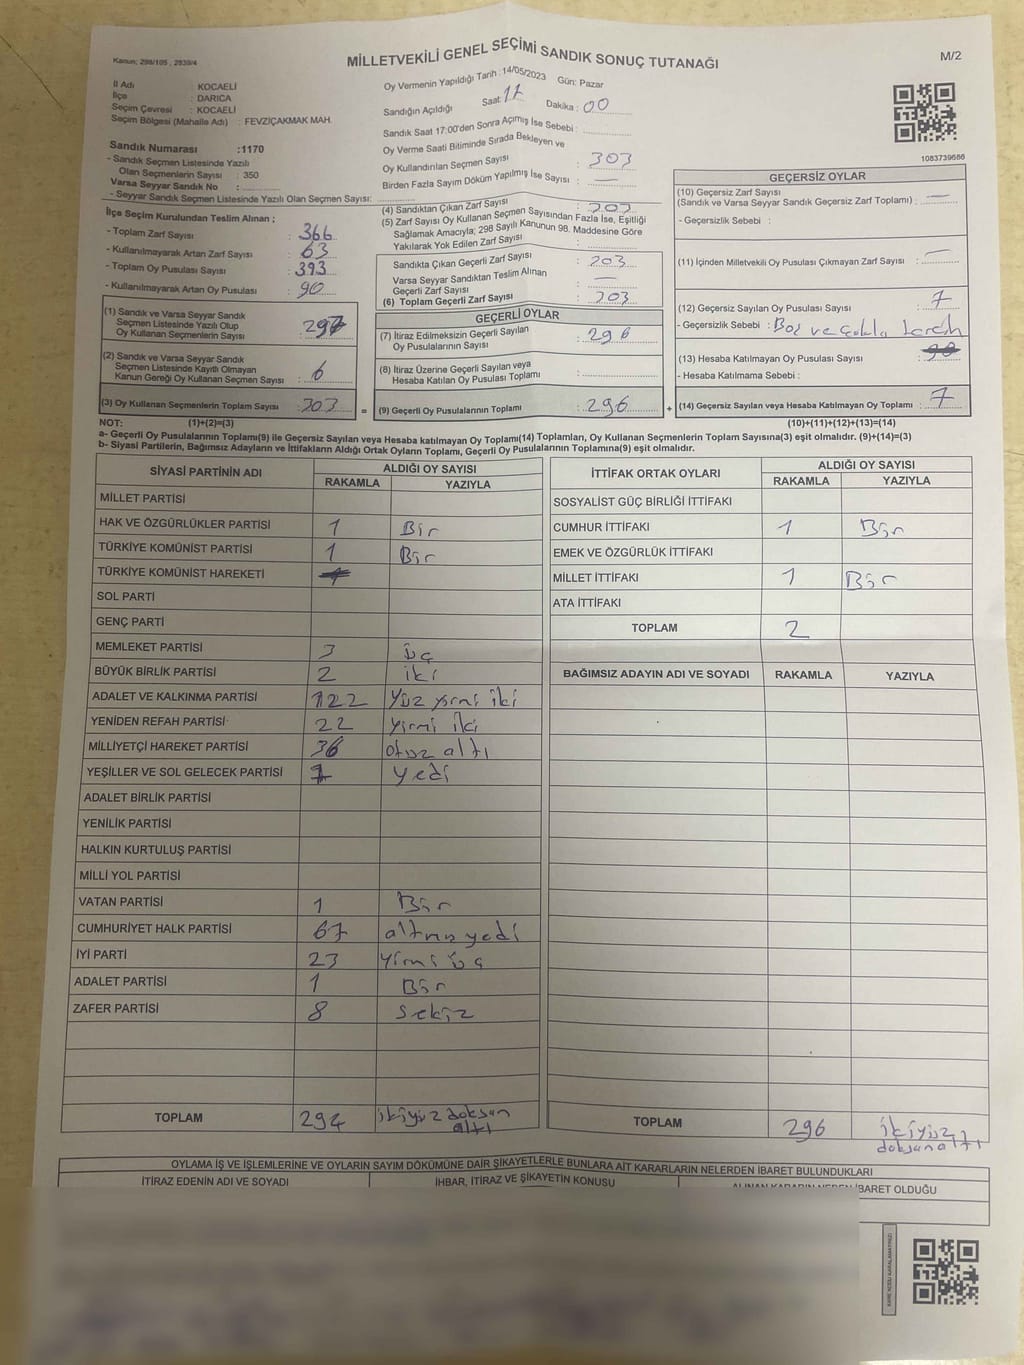 Kanun; 298/105 , 2839/4
MİLLETVEKİLİ GENEL SEÇİMİ SANDIK SONUÇ TUTANAĞI
M/2
İl Adı : KOCAELİ
İlçe : DARICA
Seçim Çevresi : KOCAELİ
Seçim Bölgesi (Mahalle Adı) : FEVZİÇAKMAK MAH.
Sandık Numarası :1170
- Sandık Seçmen Listesinde Yazılı
Olan Seçmenlerin Sayısı : 350
Varsa Seyyar Sandık No :
- Seyyar Sandık Seçmen Listesinde Yazılı Olan Seçmen Sayısı:
Oy Vermenin Yapıldığı Tarih : 14/05/2023 Gün: Pazar
Sandığın Açıldığı Saat : 17 Dakika : 00
Sandık Saat 17:00'den Sonra Açımış İse Sebebi :
Oy Verme Saati Bitiminde Sırada Bekleyen ve
Oy Kullandırılan Seçmen Sayısı : 303
Birden Fazla Sayım Döküm Yapılmış İse Sayısı : —
1083739686
İlçe Seçim Kurulundan Teslim Alınan ;
- Toplam Zarf Sayısı : 366
- Kullanılmayarak Artan Zarf Sayısı : 63
- Toplam Oy Pusulası Sayısı : 393
- Kullanılmayarak Artan Oy Pusulası : 90
(1) Sandık ve Varsa Seyyar Sandık
Seçmen Listesinde Yazılı Olup
Oy Kullanan Seçmenlerin Sayısı : 297
(2) Sandık ve Varsa Seyyar Sandık
Seçmen Listesinde Kayıtlı Olmayan
Kanun Gereği Oy Kullanan Seçmen Sayısı : 6
(3) Oy Kullanan Seçmenlerin Toplam Sayısı : 303
(4) Sandıktan Çıkan Zarf Sayısı : 303
(5) Zarf Sayısı Oy Kullanan Seçmen Sayısından Fazla İse, Eşitliği
Sağlamak Amacıyla; 298 Sayılı Kanunun 98. Maddesine Göre
Yakılarak Yok Edilen Zarf Sayısı :
Sandıkta Çıkan Geçerli Zarf Sayısı : 303
Varsa Seyyar Sandıktan Teslim Alınan
Geçerli Zarf Sayısı : —
(6) Toplam Geçerli Zarf Sayısı : 303
GEÇERLİ OYLAR
(7) İtiraz Edilmeksizin Geçerli Sayılan
Oy Pusulalarının Sayısı : 296
(8) İtiraz Üzerine Geçerli Sayılan veya
Hesaba Katılan Oy Pusulası Toplamı :
= (9) Geçerli Oy Pusulalarının Toplamı : 296 +
GEÇERSİZ OYLAR
(10) Geçersiz Zarf Sayısı
(Sandık ve Varsa Seyyar Sandık Geçersiz Zarf Toplamı) : —
- Geçersizlik Sebebi :
(11) İçinden Milletvekili Oy Pusulası Çıkmayan Zarf Sayısı : —
(12) Geçersiz Sayılan Oy Pusulası Sayısı : 7
- Geçersizlik Sebebi : Boş ve çoklu tercih
(13) Hesaba Katılmayan Oy Pusulası Sayısı :
- Hesaba Katılmama Sebebi :
(14) Geçersiz Sayılan veya Hesaba Katılmayan Oy Toplamı : 7
NOT: (1)+(2)=(3) (10)+(11)+(12)+(13)=(14)
a- Geçerli Oy Pusulalarının Toplamı(9) ile Geçersiz Sayılan veya Hesaba katılmayan Oy Toplamı(14) Toplamları, Oy Kullanan Seçmenlerin Toplam Sayısına(3) eşit olmalıdır. (9)+(14)=(3)
b- Siyasi Partilerin, Bağımsız Adayların ve İttifakların Aldığı Ortak Oyların Toplamı, Geçerli Oy Pusulalarının Toplamına(9) eşit olmalıdır.
SİYASİ PARTİNİN ADI ALDIĞI OY SAYISI
RAKAMLA YAZIYLA
MİLLET PARTİSİ
HAK VE ÖZGÜRLÜKLER PARTİSİ 1 Bir
TÜRKİYE KOMÜNİST PARTİSİ 1 Bir
TÜRKİYE KOMÜNİST HAREKETİ
SOL PARTİ
GENÇ PARTİ
MEMLEKET PARTİSİ 3 üç
BÜYÜK BİRLİK PARTİSİ 2 iki
ADALET VE KALKINMA PARTİSİ 122 yüz yirmi iki
YENİDEN REFAH PARTİSİ 22 yirmi iki
MİLLİYETÇİ HAREKET PARTİSİ 36 otuz altı
YEŞİLLER VE SOL GELECEK PARTİSİ 7 yedi
ADALET BİRLİK PARTİSİ
YENİLİK PARTİSİ
HALKIN KURTULUŞ PARTİSİ
MİLLİ YOL PARTİSİ
VATAN PARTİSİ 1 Bir
CUMHURİYET HALK PARTİSİ 67 altmış yedi
İYİ PARTİ 23 yirmi üç
ADALET PARTİSİ 1 Bir
ZAFER PARTİSİ 8 sekiz
TOPLAM 294 ikiyüz doksan
altı
İTTİFAK ORTAK OYLARI ALDIĞI OY SAYISI
RAKAMLA YAZIYLA
SOSYALİST GÜÇ BİRLİĞİ İTTİFAKI
CUMHUR İTTİFAKI 1 Bir
EMEK VE ÖZGÜRLÜK İTTİFAKI
MİLLET İTTİFAKI 1 Bir
ATA İTTİFAKI
TOPLAM 2
BAĞIMSIZ ADAYIN ADI VE SOYADI RAKAMLA YAZIYLA
TOPLAM 296 ikiyüz
doksanaltı
OYLAMA İŞ VE İŞLEMLERİNE VE OYLARIN SAYIM DÖKÜMÜNE DAİR ŞİKAYETLERLE BUNLARA AİT KARARLARIN NELERDEN İBARET BULUNDUKLARI
İTİRAZ EDENİN ADI VE SOYADI İHBAR, İTİRAZ VE ŞİKAYETİN KONUSU ALINAN KARARIN NEDEN İBARET OLDUĞU